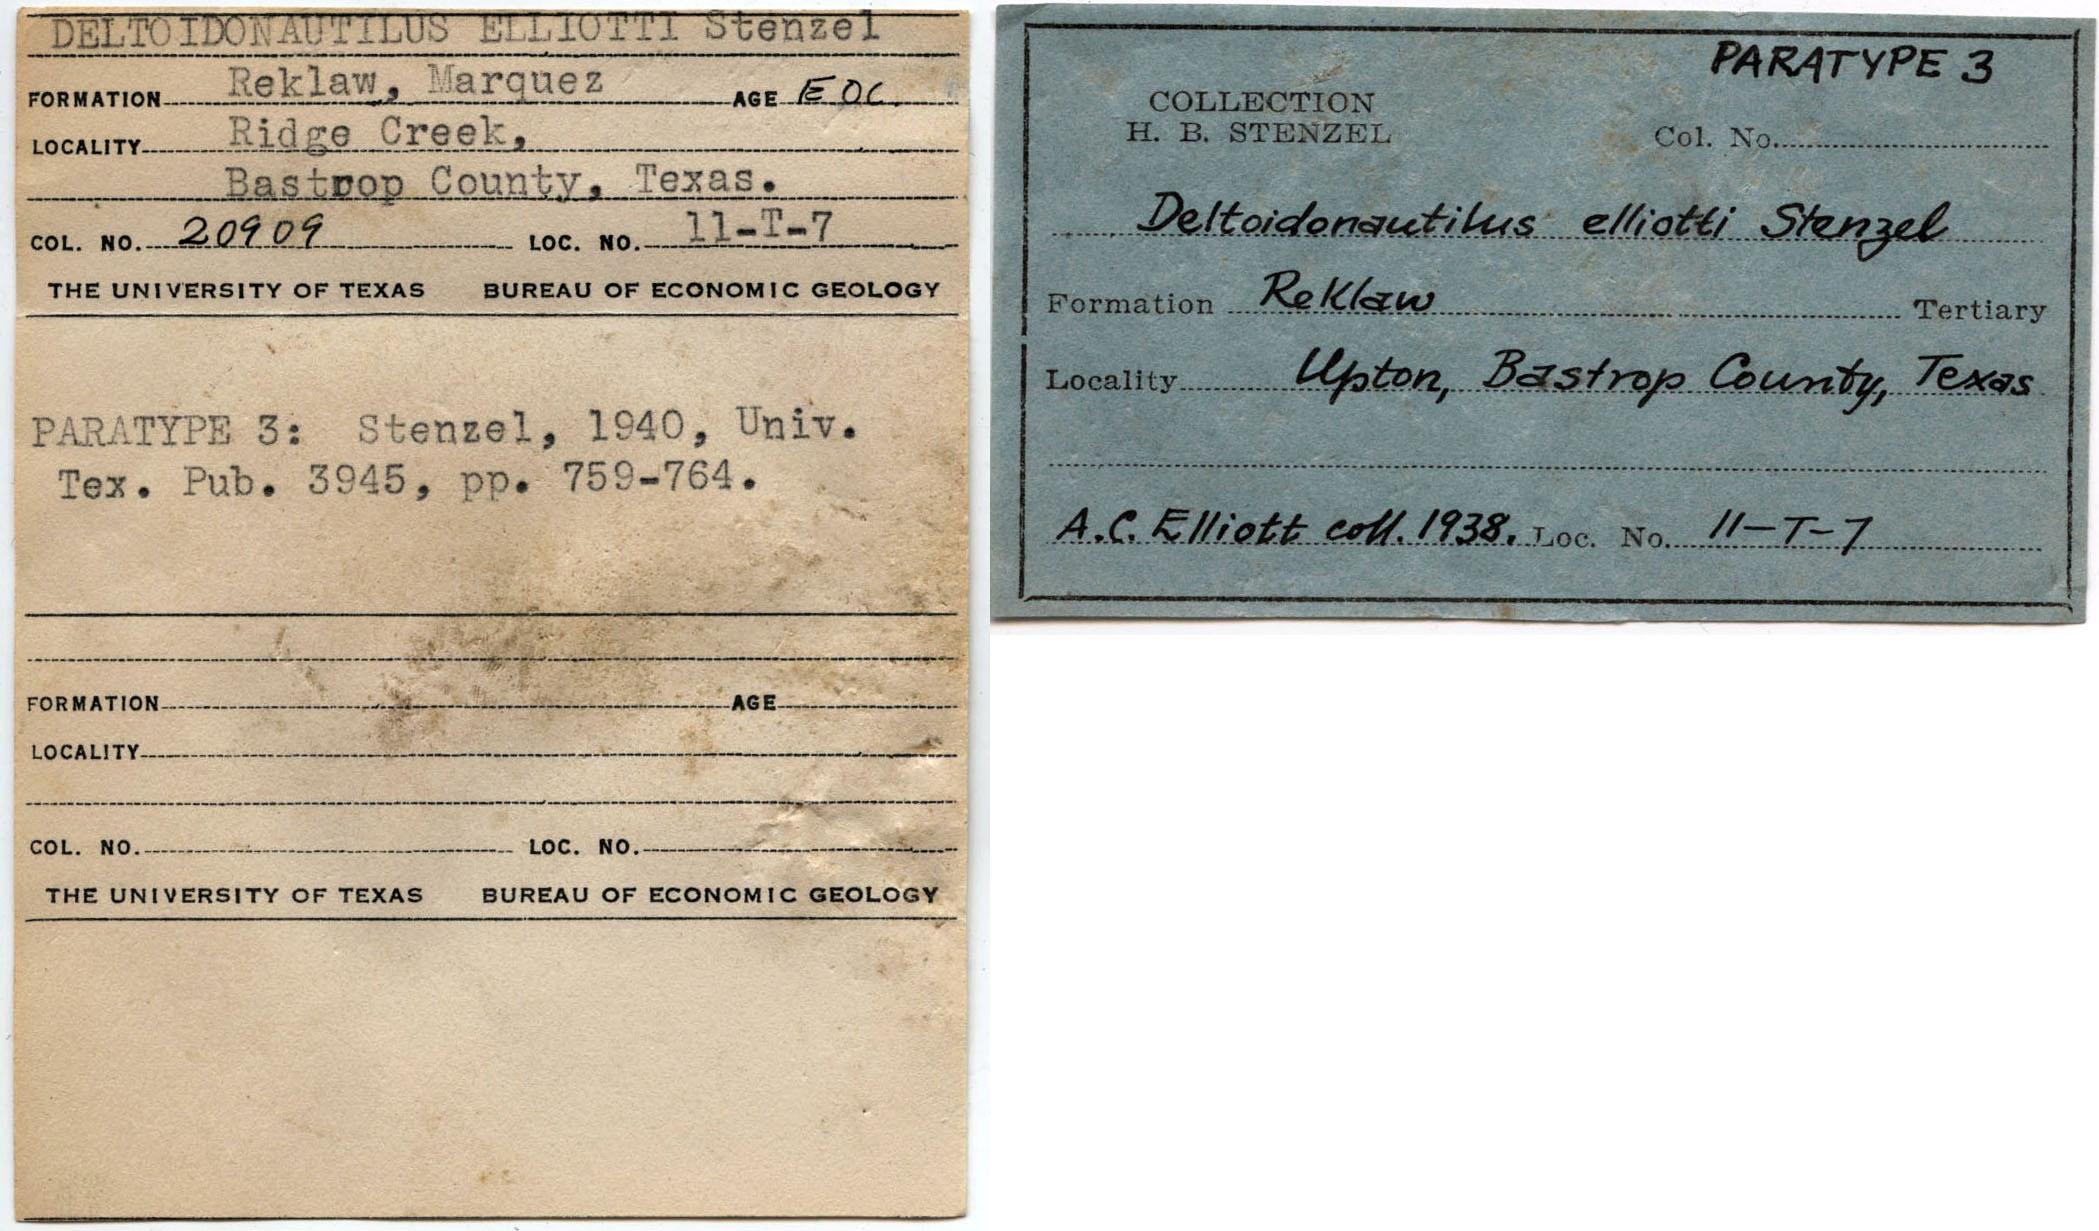 DELTOIDONAUTILUS ELLIOTTI Stenzel
FORMATION Reklaw, Marquez AGE EOC.
LOCALITY Ridge Creek,
Bastrop County, Texas.
COL. NO. 20909 LOC. NO. 11-T-7
THE UNIVERSITY OF TEXAS BUREAU OF ECONOMIC GEOLOGY
PARATYPE 3: Stenzel, 1940, Univ.
Tex. Pub. 3945, pp. 759-764.
FORMATION AGE
LOCALITY
COL. NO. LOC. NO.
THE UNIVERSITY OF TEXAS BUREAU OF ECONOMIC GEOLOGY
PARATYPE 3
COLLECTION
H. B. STENZEL Col. No.
Deltoidonautilus elliotti Stenzel
Formation Reklaw Tertiary
Locality Upton, Bastrop County, Texas
A.C. Elliott coll. 1938. Loc. No. 11-T-7